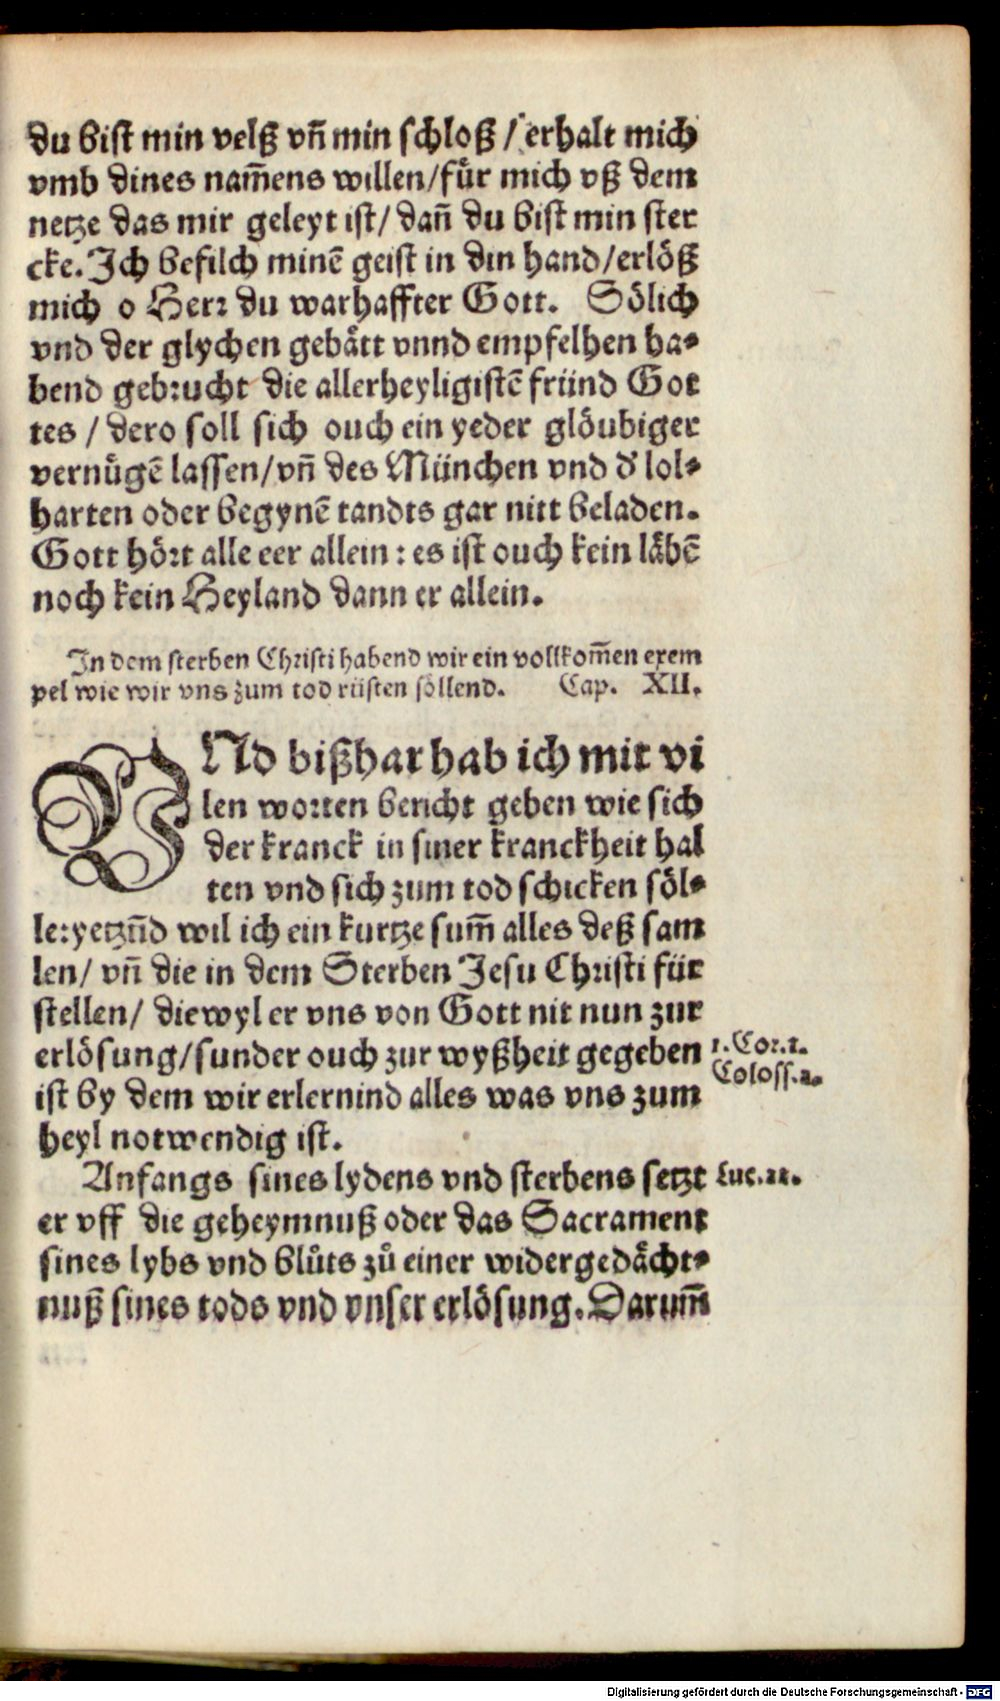 du bist min velß vñ min schloß / erhalt mich
vmb dines nam̃ens willen/für mich vß dem
netze das mir geleyt ist/ dañ du bist min ster
cke. Ich befilch minẽ geist in din hand/erlöß
mich o Herr du warhaffter Gott. Sölich
vnd der glychen gebätt vnnd empfelhen ha-
bend gebrucht die allerheyligistẽ fründ Got
tes / dero soll sich ouch ein yeder glöubiger
vernůgẽ lassen/vñ des München vnd d' lol-
harten oder begynẽ tandts gar nitt beladen.
Gott hört alle eer allein : es ist ouch kein läbẽ
noch kein Heyland dann er allein.
In dem sterben Christi habend wir ein vollkom̃en exem
pel wie wir vns zum tod rüsten söllend. Cap. XII.
VNd bißhar hab ich mit vi
len worten bericht geben wie sich
der kranck in siner kranckheit hal
ten vnd sich zum tod schicken söl-
le:yetzũd wil ich ein kurtze sum̃ alles deß sam
len/ vñ die in dem Sterben Jesu Christi für
stellen/ diewyl er vns von Gott nit nun zur
erlösung/sunder ouch zur wyßheit gegeben
1. Cor. 1.
Coloss. 2.
ist by dem wir erlernind alles was vns zum
heyl notwendig ist.
Anfangs sines lydens vnd sterbens setzt
Luc. 22.
er vff die geheymnuß oder das Sacrament
sines lybs vnd blůts zů einer widergedächt-
nuß sines tods vnd vnser erlösung. Darum̃
Digitalisierung gefördert durch die Deutsche Forschungsgemeinschaft - DFG